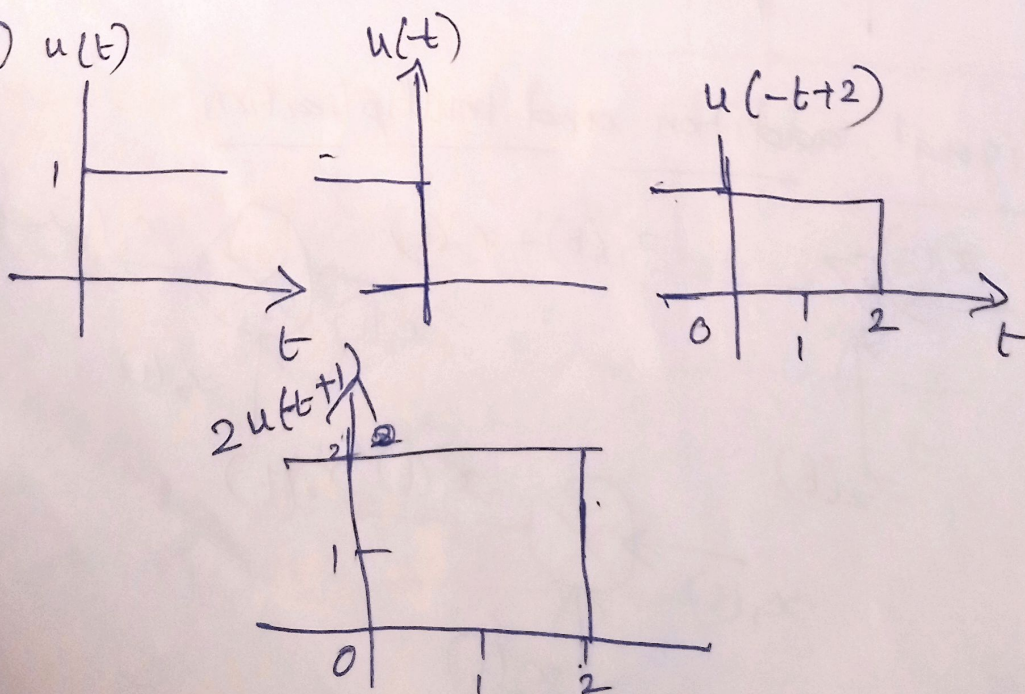 ) u(t)
u(-t)
u(-t+2)
1
0 1 2
t
t
2u(-t+1)
2
1
0
1 2